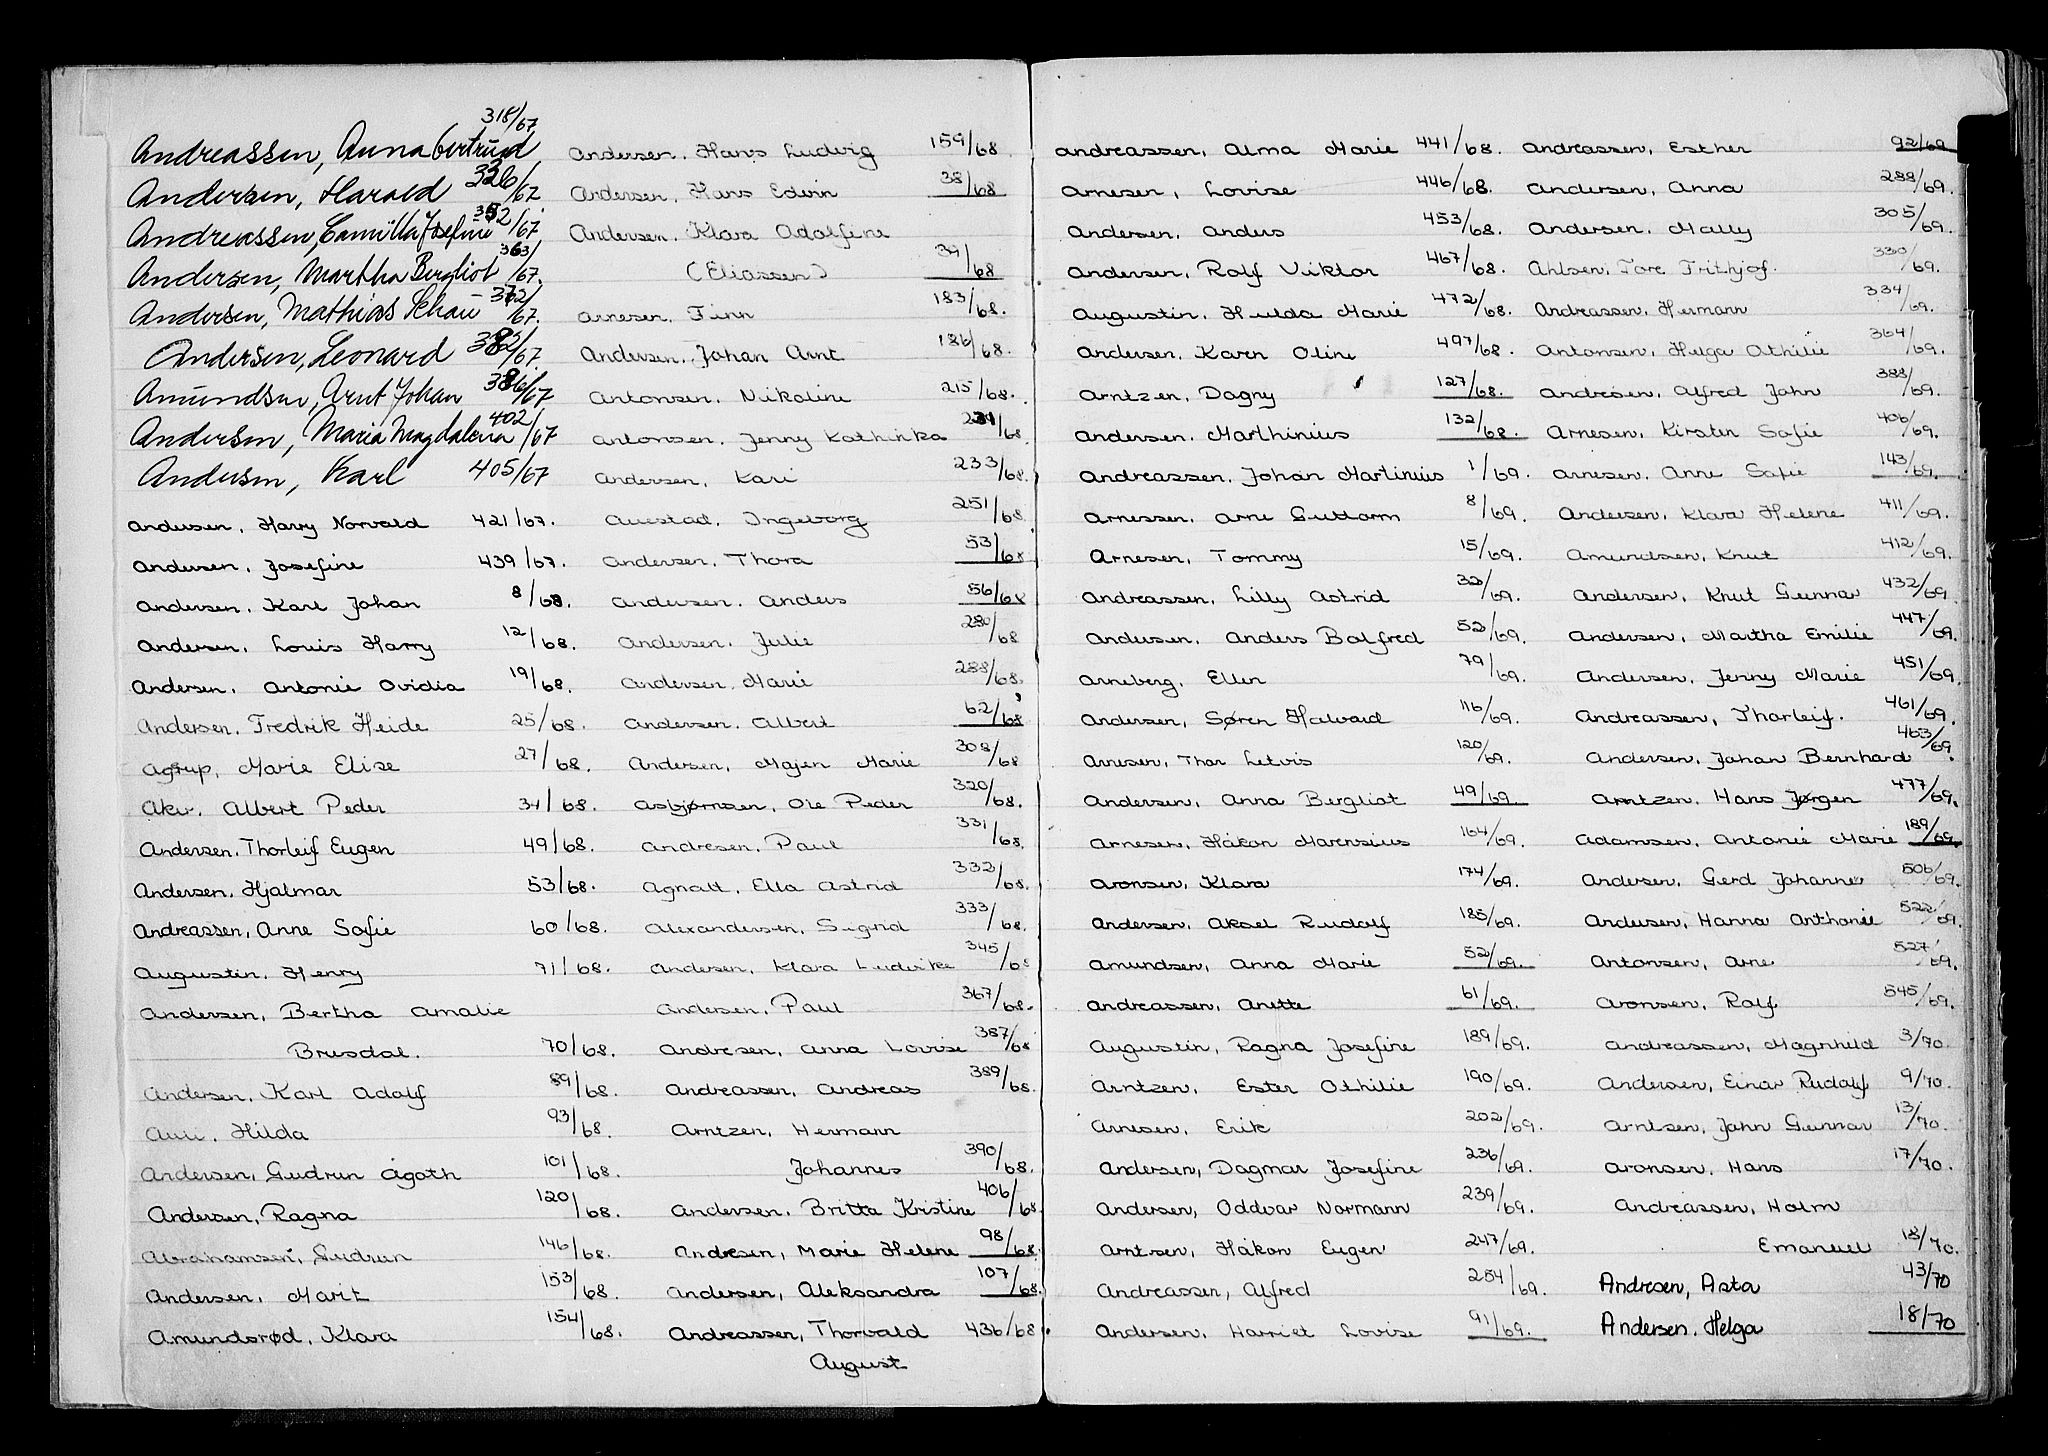 Andreassen, Anna Gertrud 318/67
Andersen, Harald 326/67
Andreassen, Camilla Josefine 352/67
Andersen, Martha Bergliot 363/67.
Andersen, Mathias Schau 372/67.
Andersen, Leonard 382/67.
Amundsen, Arnt Johan 386/67
Andersen, Maria Magdalena 402/67
Andersen, Karl 405/67
Andersen, Harry Norvald 421/67.
Andersen, Josefine 439/67.
Andersen, Karl Johan 8/68.
Andersen, Louis Harry 12/68.
Andersen, Antonie Ovidia 19/68.
Andersen, Fredrik Heide 25/68.
Agrup, Marie Elise 27/68.
Aker, Albert Peder 34/68.
Andersen, Thorleif Eugen 49/68.
Andersen, Hjalmar 53/68.
Andreassen, Anne Sofie 60/68.
Augustin, Henry 71/68.
Andersen, Bertha Amalie
Brusdal. 70/68.
Andersen, Karl Adolf 89/68.
Auli, Hilda 93/68.
Andersen, Gudrun Agoth 101/68.
Andersen, Ragna 120/68.
Abrahamsen, Gudrun 146/68.
Andersen, Marit 153/68.
Amundsrød, Klara 154/68.
Andersen, Hans Ludvig 159/68.
Andersen, Hans Edvin 38/68
Andersen, Klara Adolfine
(Eliassen) 39/68
Arnesen, Finn 183/68.
Andersen, Johan Arnt 186/68.
Antonsen, Nikoline 215/68.
Antonsen, Jenny Kathinka 231/68.
Andersen, Kari 233/68.
Auestad, Ingeborg 251/68
Andersen, Thora 53/68
Andersen, Anders 56/68
Andersen, Julie 280/68
Andersen, Marie 288/68.
Andersen, Albert 62/68
Andersen, Majen Marie 308/68
Asbjørnsen, Ole Peder 320/68.
Andresen, Paul 331/68.
Agnalt, Ella Astrid 332/68.
Alexandersen, Sigrid 333/68.
Andersen, Klara Ludvike 345/68
Andersen, Paul 367/68.
Andresen, Anna Lovise 387/68
Andreassen, Andreas 389/68.
Arntzen, Hermann
Johannes 390/68.
Andersen, Britta Kristine 406/68.
Andresen, Marie Helene 98/68.
Andersen, Aleksandra 107/68.
Andreassen, Thorvald 436/68.
August
Andreassen, Alma Marie 441/68.
Arnesen, Lovise 446/68.
Andersen, Anders 453/68.
Andersen, Rolf Viktor 467/68.
Augustin, Hulda Marie 472/68.
Andersen, Karen Oline 497/68.
Arntzen, Dagny 127/68.
Andersen, Marthinius 132/68.
Andreassen, Johan Martinius 1/69.
Arnessen, Arne Guttorm 8/69.
Arnesen, Tommy 15/69.
Andreassen, Lilly Astrid 32/69.
Andersen, Anders Balfred 52/69.
Arneberg, Ellen 79/69.
Andersen, Søren Halvard 116/69.
Arnesen, Thor Letvis 120/69.
Andersen, Anna Bergliot 49/69.
Arnesen, Håkon Marensius 164/69.
Aronsen, Klara 174/69.
Andersen, Aksel Rudolf 185/69.
Amundsen, Anna Marie 52/69.
Andreassen, Anette 61/69.
Augustin, Ragna Josefine 189/69.
Arntzen, Ester Othilie 190/69.
Arnesen, Erik 202/69.
Andersen, Dagmar Josefine 236/69.
Andersen, Oddvar Normann 239/69.
Arntsen, Håkon Eugen 247/69.
Andreassen, Alfred 254/69.
Andersen, Harriet Lovise 91/69.
Andreassen, Esther 92/69
Andersen, Anna 288/69.
Andersen, Mally 305/69.
Ahlsen, Tore Frithjof. 330/69.
Andreassen, Hermann 334/69.
Antonsen, Helga Othilie 364/69.
Andresen, Alfred John 388/69.
Arnesen, Kirsten Sofie 406/69.
Arnesen, Anne Sofie 143/69.
Andersen, Klara Helene 411/69.
Amundsen, Knut 412/69.
Andersen, Knut Gunnar 432/69.
Andersen, Martha Emilie 447/69.
Andersen, Jenny Marie 451/69.
Andreassen, Thorleif. 461/69.
Andersen, Johan Bernhard 463/69.
Arntzen, Hans Jørgen 477/69.
Adamsen, Antonie Marie 189/69.
Andersen, Gerd Johanne 506/69.
Andersen, Hanna Anthonie 522/69.
Antonsen, Arne 527/69.
Aronsen, Rolf 545/69.
Andreassen, Magnhild 3/70.
Andersen, Einar Rudolf 9/70.
Arntsen, John Gunnar 13/70.
Aronsen, Hans 17/70.
Andreassen, Holm
Emanuel 18/70.
Andresen, Asta 43/70
Andersen, Helga 18/70